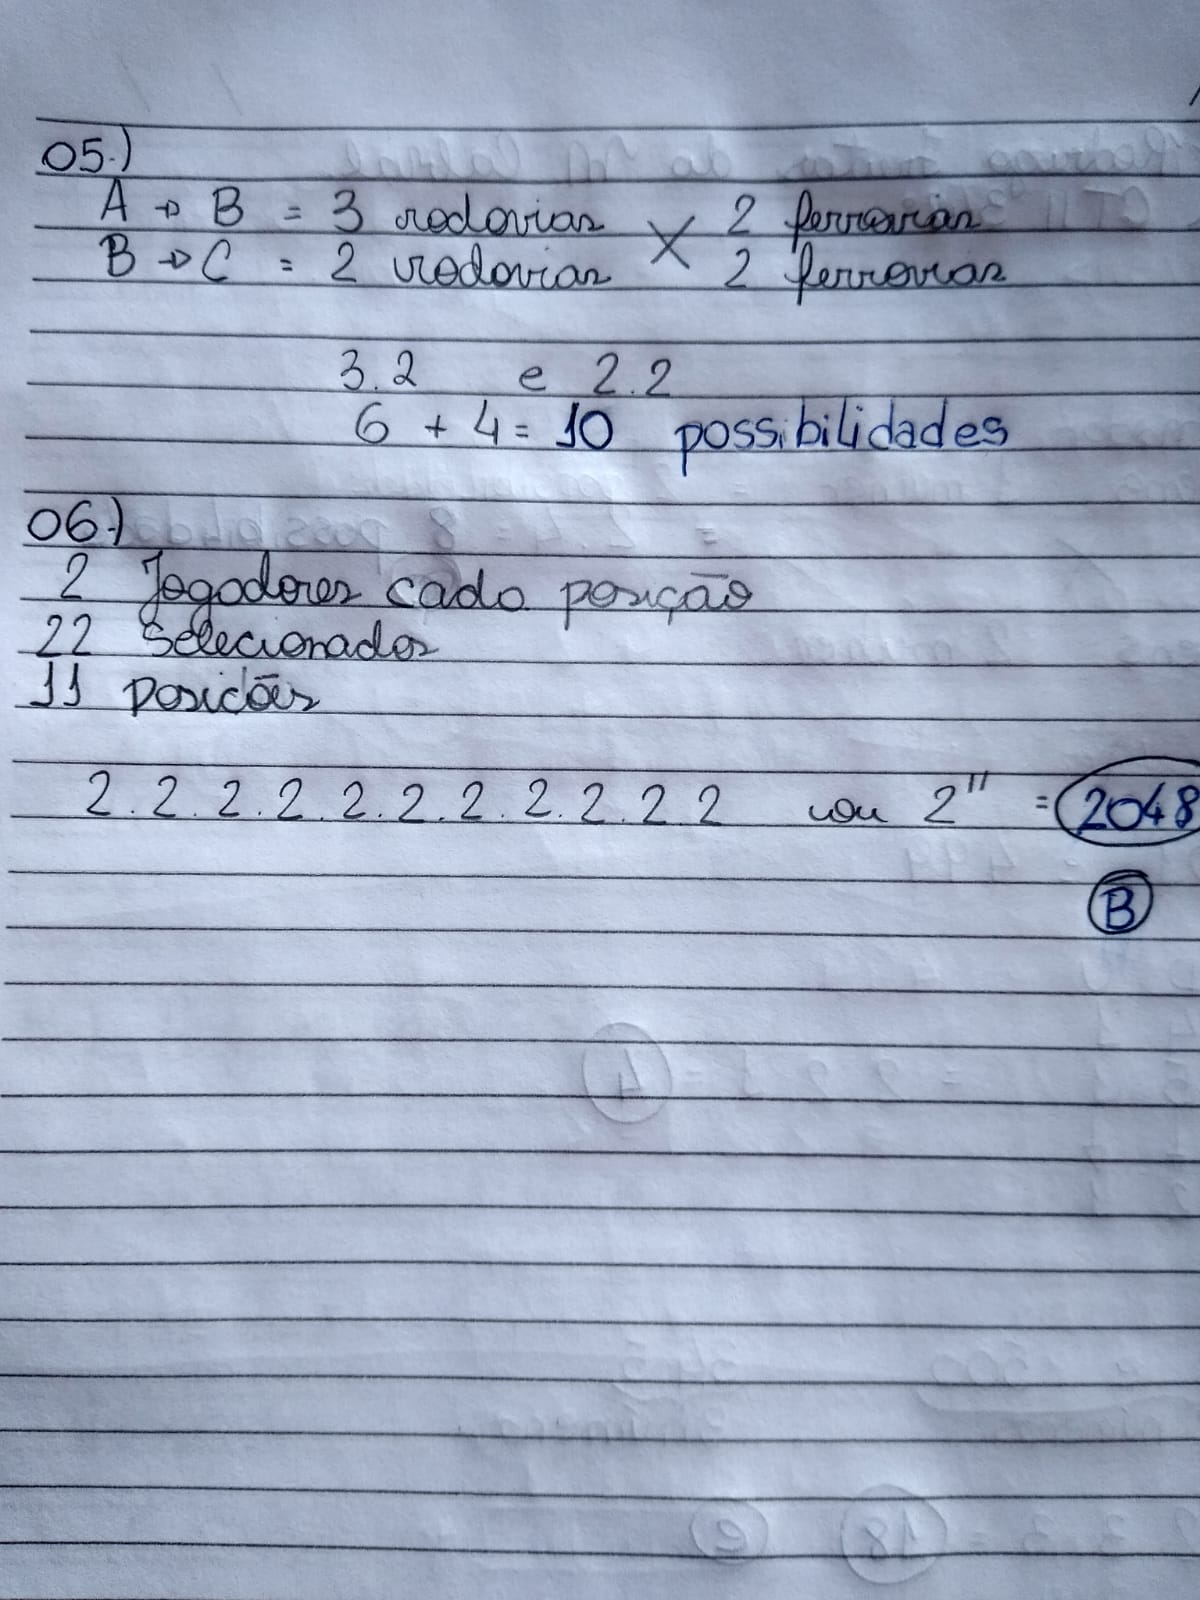 05.)
A → B = 3 rodovias X 2 ferrovias
B → C = 2 rodovias 2 ferrovias
3.2 e 2.2
6 + 4 = 10 possibilidades
06.)
2 Jogadores cada posição
22 Selecionados
11 posicões
2.2.2.2.2.2.2.2.2.2.2 ou 2¹¹ = 2048
B